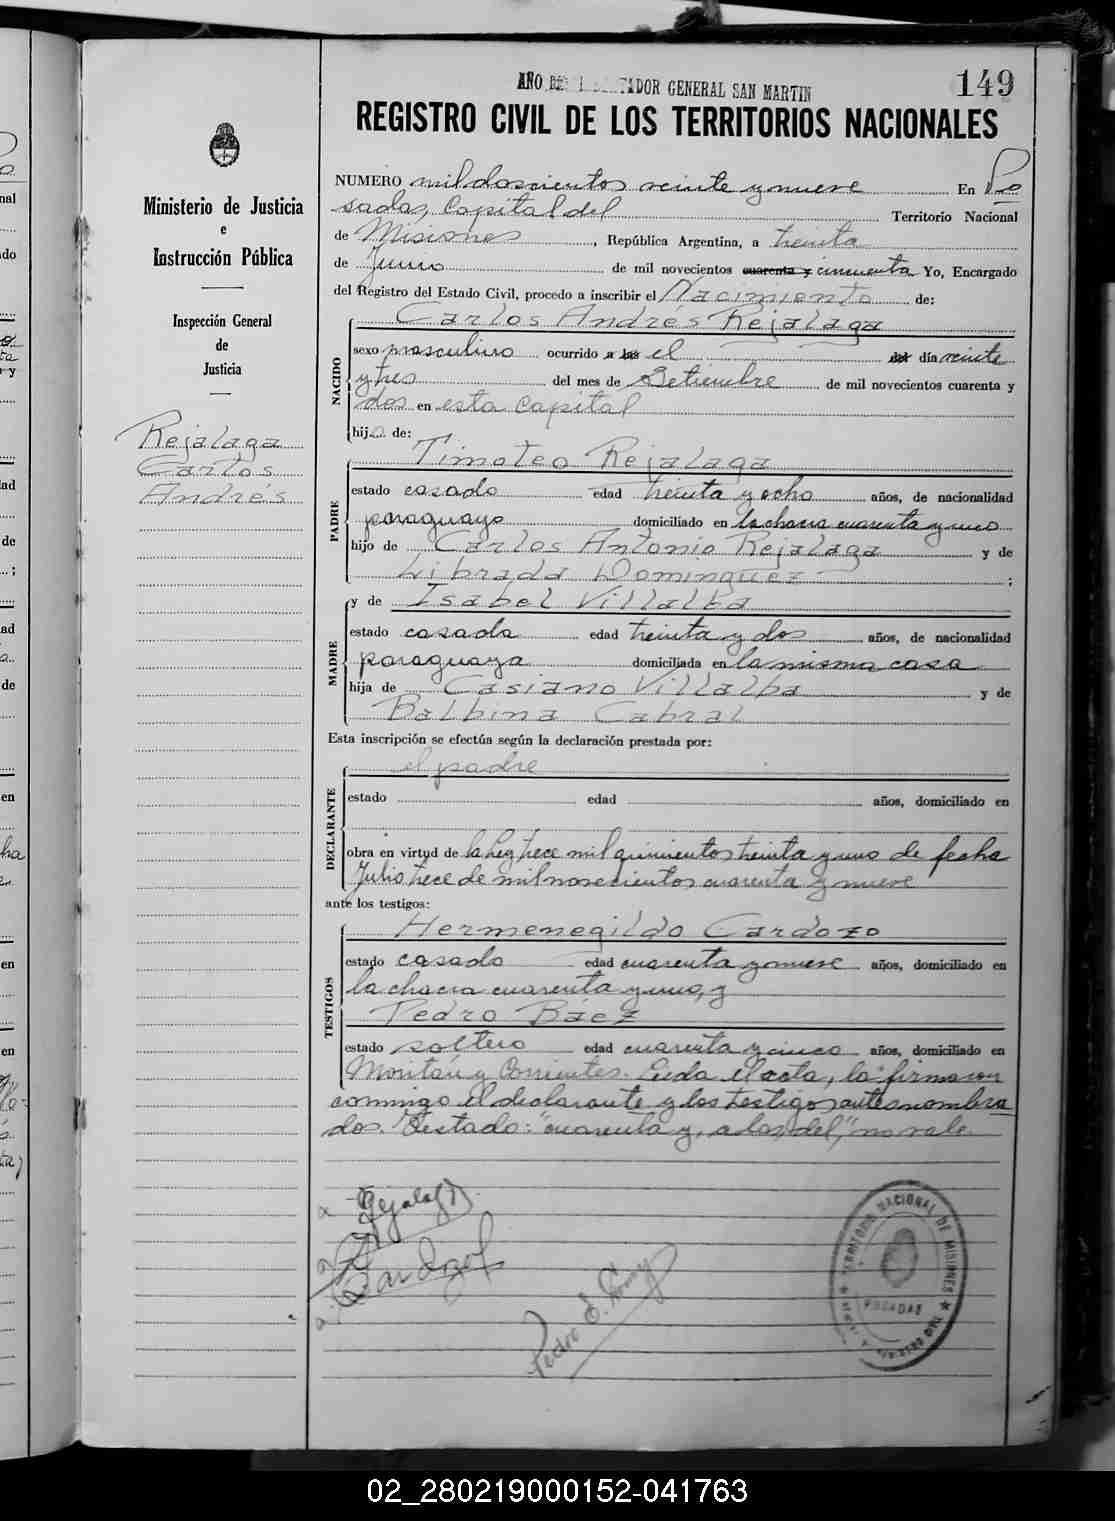 AÑO DEL LIBERTADOR GENERAL SAN MARTIN
149
REGISTRO CIVIL DE LOS TERRITORIOS NACIONALES
Ministerio de Justicia
e
Instrucción Pública
Inspección General
de
Justicia
Rejalaga
Carlos
Andrés
NUMERO mil doscientos veinte y nueve En Po
sadas, Capital del Territorio Nacional
de Misiones, República Argentina, a treinta
de Junio de mil novecientos cuarenta y cincuenta Yo, Encargado
del Registro del Estado Civil, procedo a inscribir el Nacimiento de:
Carlos Andrés Rejalaga
NACIDO
sexo masculino ocurrido a las el del día veinte
y tres del mes de Setiembre de mil novecientos cuarenta y
dos en esta capital
hijo de:
Timoteo Rejalaga
PADRE
estado casado edad treinta y ocho años, de nacionalidad
paraguayo domiciliado en la chacra cuarenta y uno
hijo de Carlos Antonio Rejalaga y de
Librada Dominguez ;
y de Isabel Villalba
MADRE
estado casada edad treinta y dos años, de nacionalidad
paraguaya domiciliada en la misma casa
hija de Casiano Villalba y de
Balbina Cabral
Esta inscripción se efectúa según la declaración prestada por:
el padre
DECLARANTE
estado edad años, domiciliado en
obra en virtud de la Ley trece mil quinientos treinta y uno de fecha
Julio trece de mil novecientos cuarenta y nueve
ante los testigos:
Hermenegildo Cardozo
TESTIGOS
estado casado edad cuarenta y nueve años, domiciliado en
la chacra cuarenta y uno, y
Pedro Báez
estado soltero edad cuarenta y cinco años, domiciliado en
y Corrientes. Leida el acta, la firmaron
conmigo el declarante y los testigos antes nombra
dos. Testado: "cuarenta y, a las, del," no vale.
Rejalaga
Cardozo
Pedro
TERRITORIO NACIONAL DE MISIONES
POSADAS
02_280219000152-041763